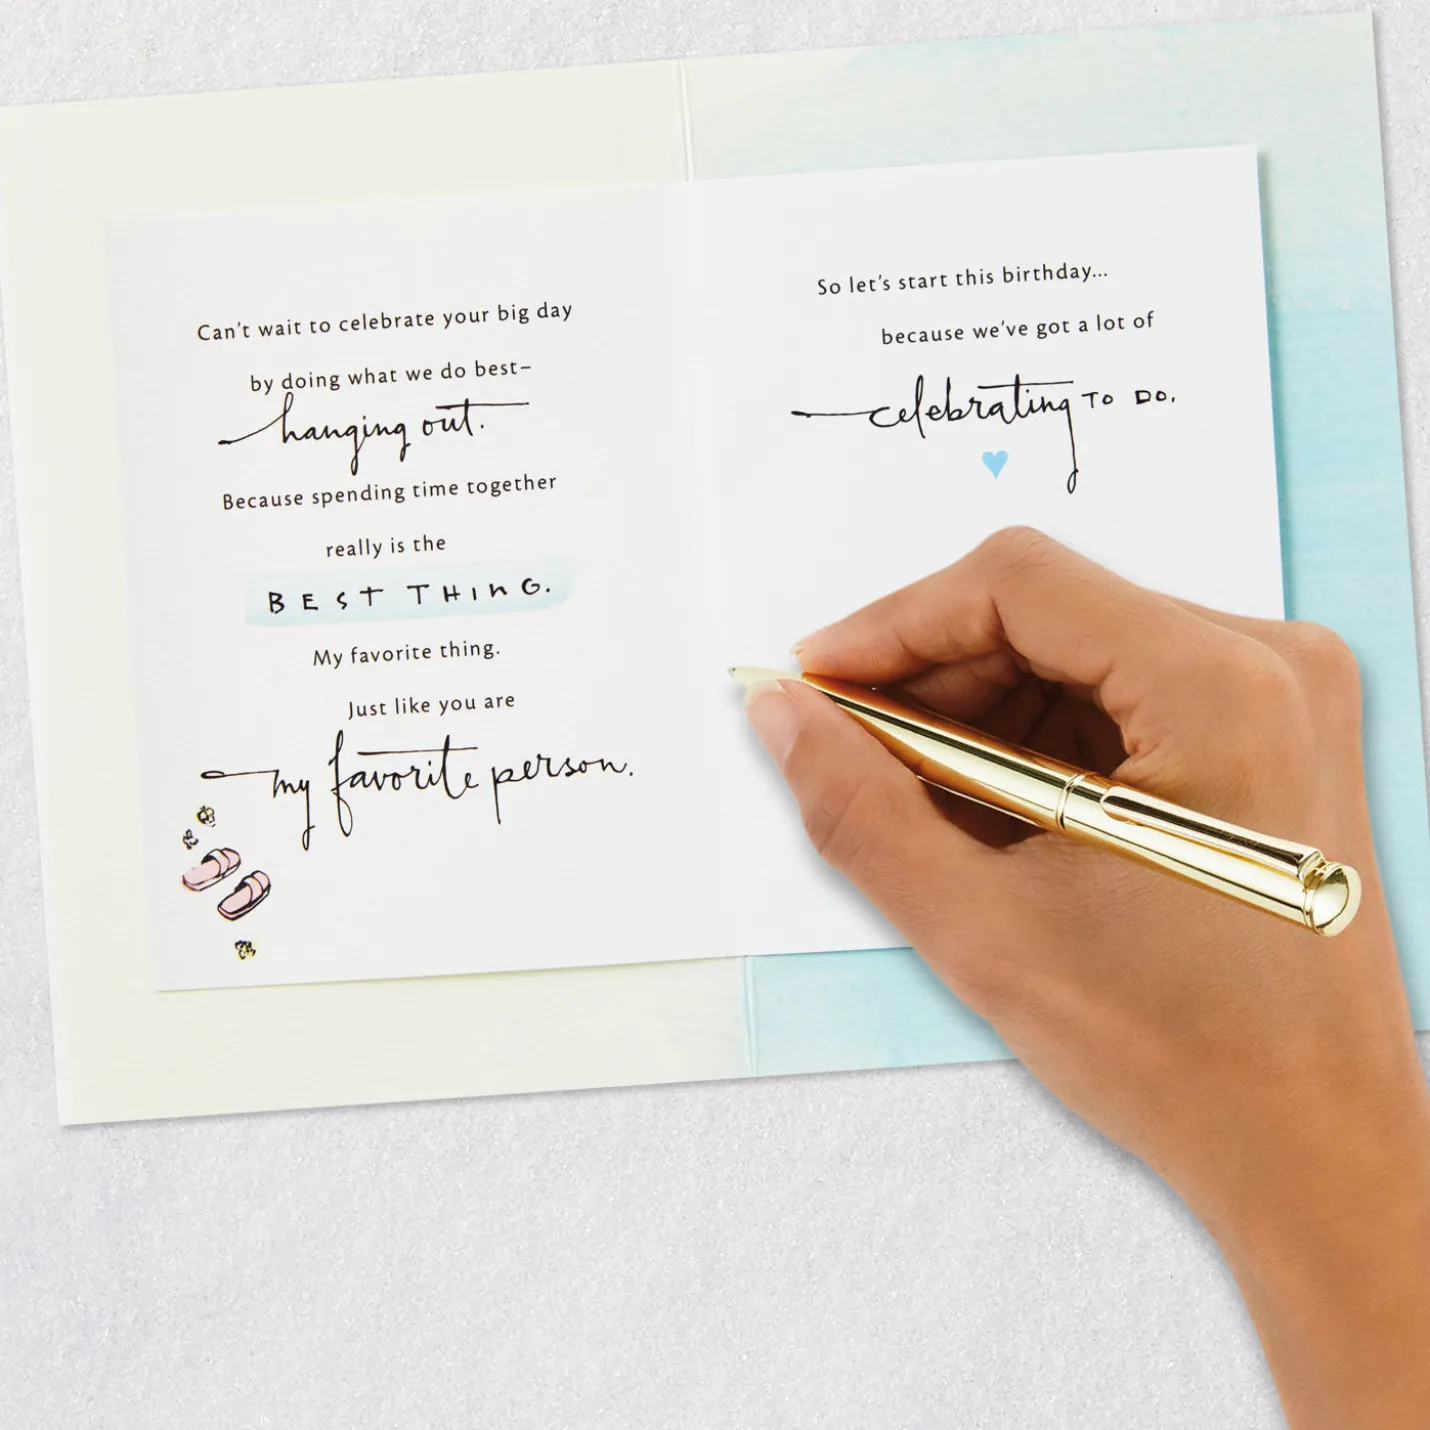 Can't wait to celebrate your big day
by doing what we do best–
hanging out.
Because spending time together
really is the
BEST THING.
My favorite thing.
Just like you are
my favorite person.
So let's start this birthday...
because we've got a lot of
celebrating TO DO.